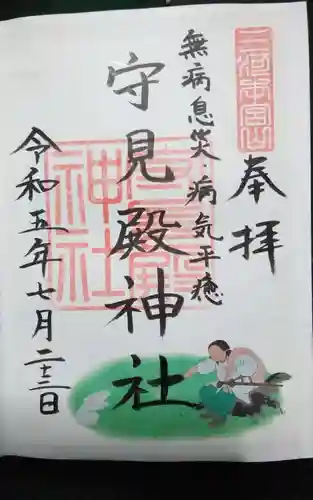 三河本宮山
奉拝
無病息災・病気平癒
守見殿神社
守見殿神社
令和五年七月二十三日